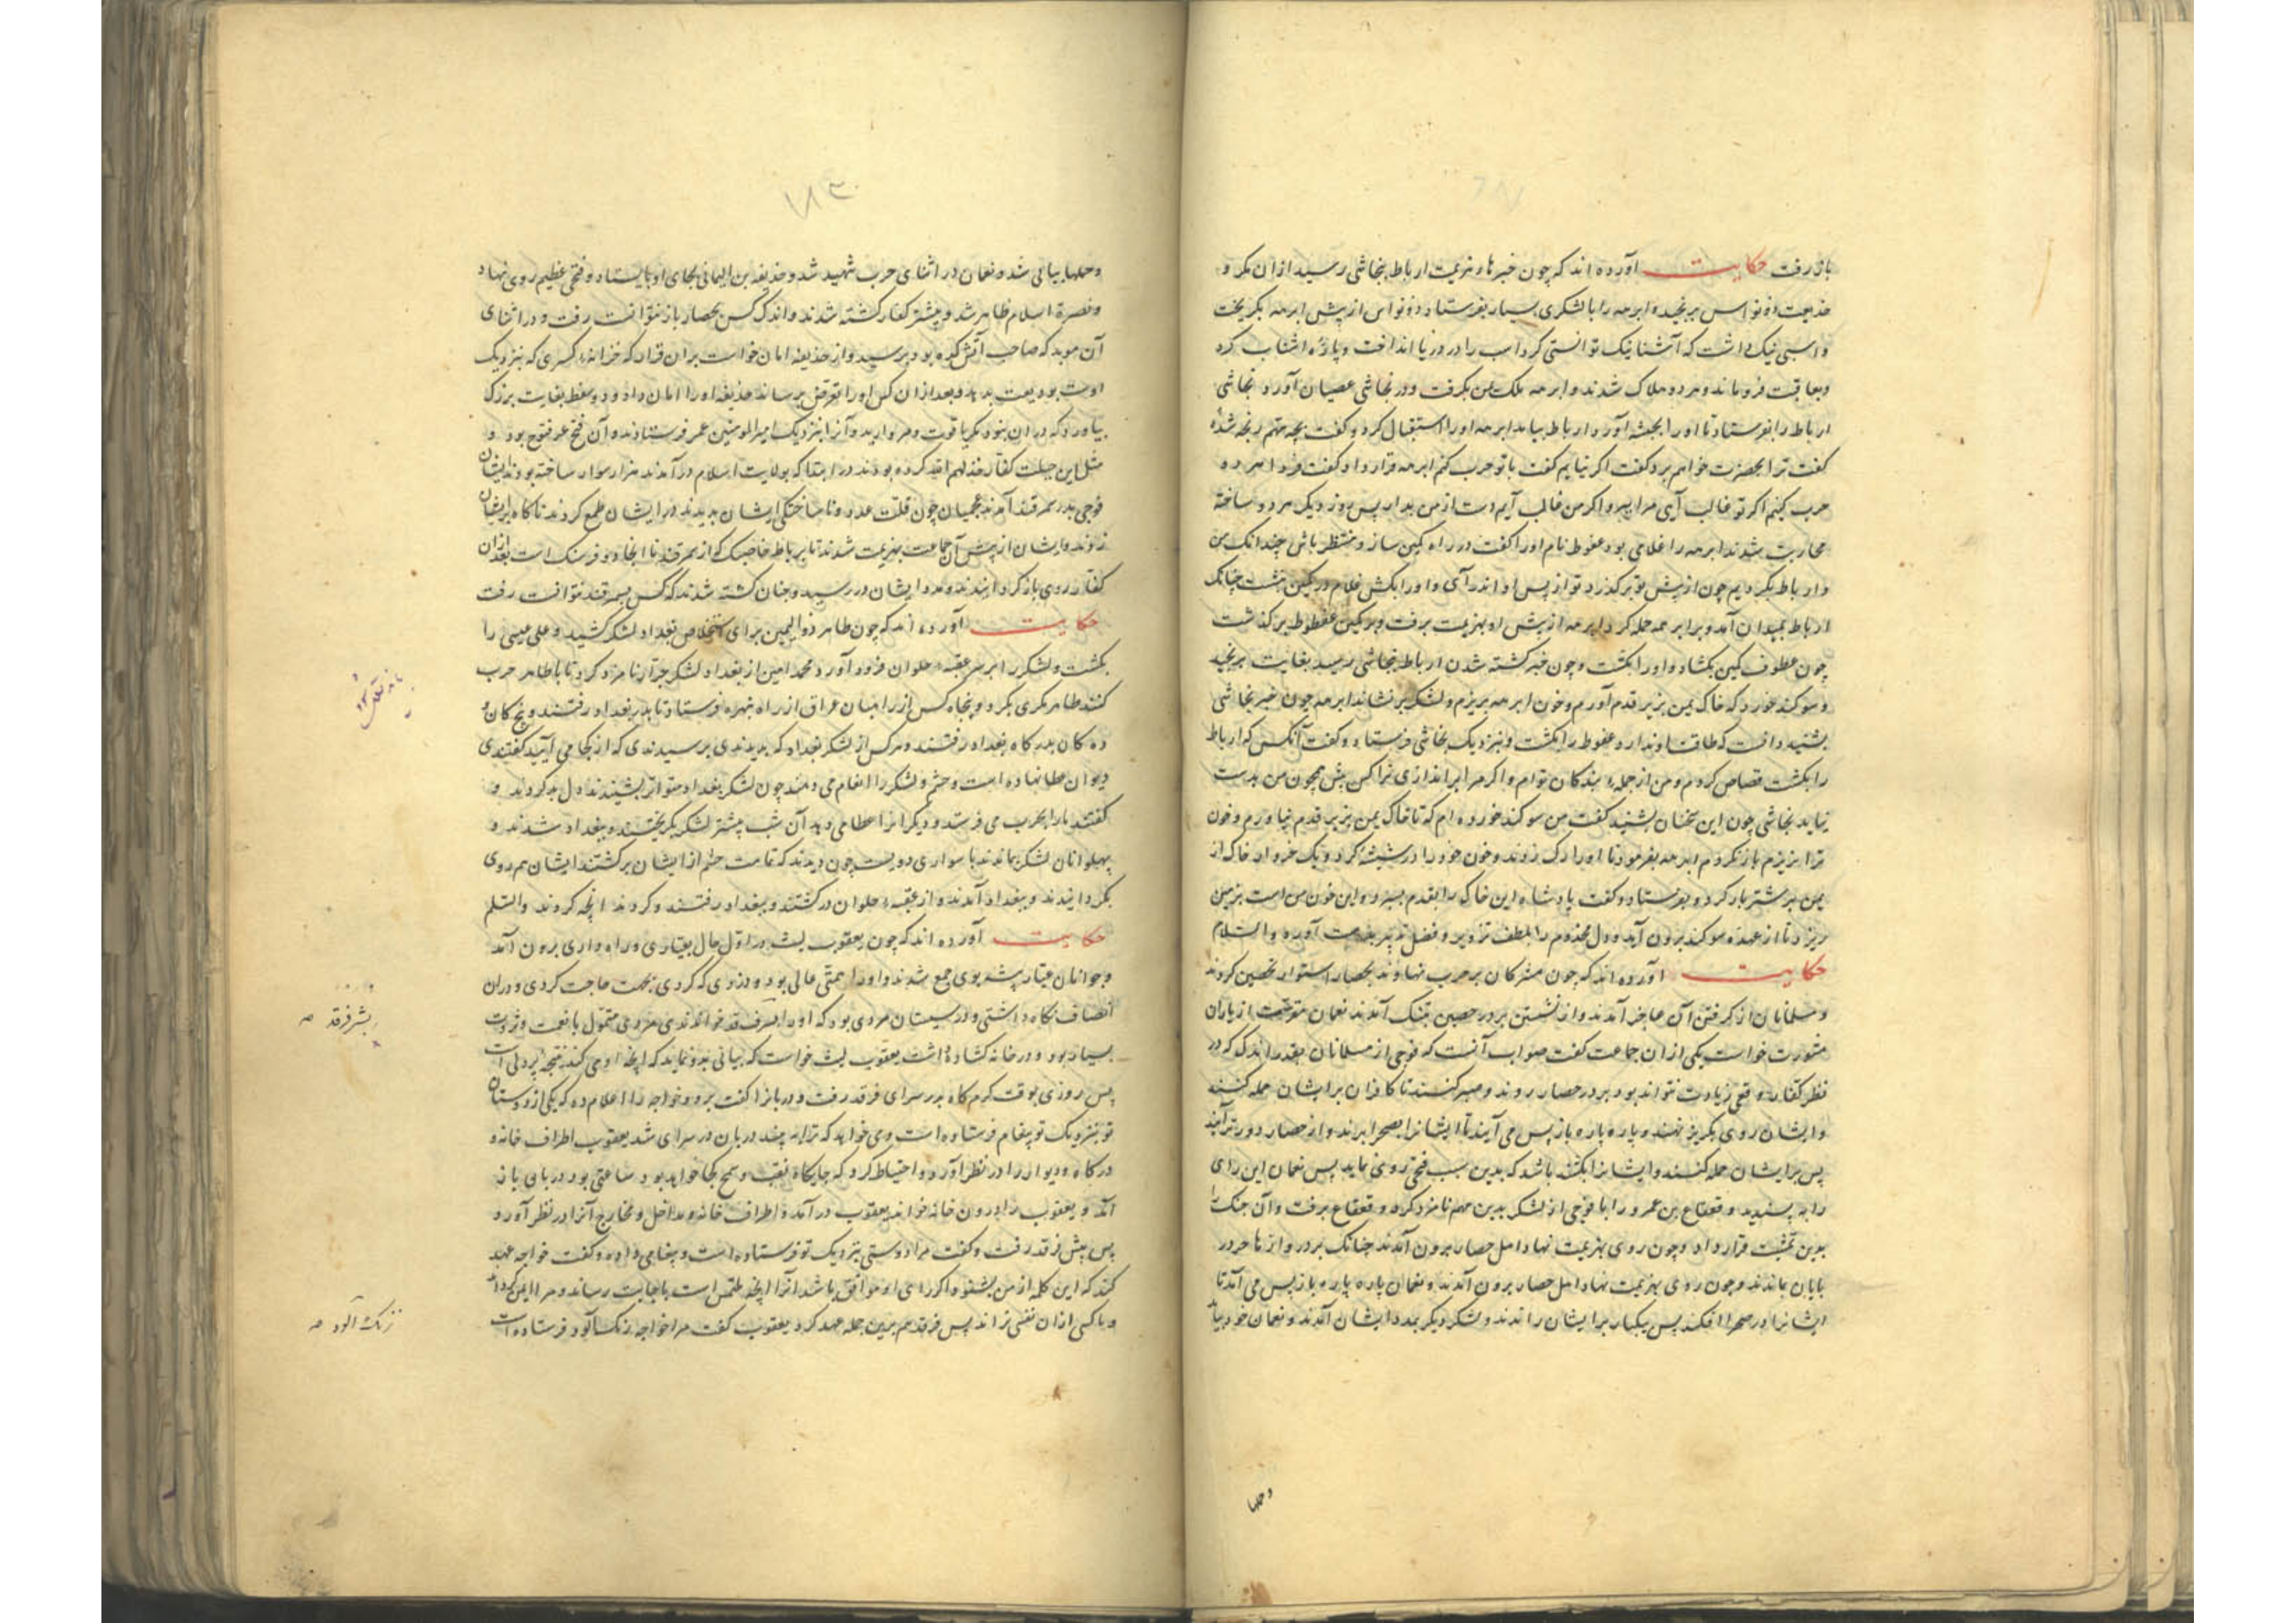 باز رفت حکایت آورده اند که چون خبر هزیمت ارباط بنجاشی رسید ازان مکر و
خدیعت ذونواس برنجید و ابرهه را با لشکری بسیار بفرستاد و ذونواس از پیش ابرهه بگریخت
و اسبی نیک داشت که آشنا نیک توانستی کرد اسب را در دریا انداخت و پاره اشناب کرد
و بعاقبت فروماند و هر دو هلاک شدند و ابرهه ملک یمن بگرفت و در نجاشی عصیان آورد نجاشی
ارباط را بفرستاد تا او را بحبشه آورد ارباط بیامد ابرهه او را استقبال کرد و گفت بچه مهم رنجه شدۀ
گفت ترا بحضرت خواهم برد گفت اگر نیایم گفت با تو حرب کنم ابرهه قرار داد و گفت فردا هر دو
حرب کنیم اگر تو غالب آیی مرا ببر و اگر من غالب آیم دست از من بدار پس روز دیگر هر دو ساخته
محاربت شدند ابرهه را غلامی بود عفوط نام او را گفت در راه کمین ساز و منتظر باش چندانک من
و ارباط بگردیم چون از پیش تو برگذرد تو از پس او اندر آی و او را بکش غلام در کمین نشست چنانک
ارباط بمیدان آمد و بر ابرهه حمله کرد ابرهه از پیش او بهزیمت برفت و بر کمین عفطوط برگذشت
چون عطوف کمین بگشاد و او را بکشت و چون خبر کشته شدن ارباط بنجاشی رسید بغایت برنجید
و سوگند خورد که خاک یمن بزیر قدم آورم و خون ابرهه بریزم و لشکر برنشاند ابرهه چون خبر نجاشی
بشنید دانست که طاقت او ندارد عفوط را بکشت و بنزدیک نجاشی فرستاد و گفت آنکس که ارباط
را بکشت قصاص کردم و من از جملۀ بندگان توام و اگر مرا براندازی ترا کس بیش همچون من بدست
نیاید نجاشی چون این سخنان بشنید گفت من سوگند خورده ام که تا خاک یمن بزیر قدم نیاورم و خون
ترا نریزم باز نگردم ابرهه بفرمود تا او را رگ زدند و خون خود را در شیشۀ کرد و یک خروار خاک از
یمن بر شتر بار کرد و بفرستاد و گفت پادشاه این خاک را بقدم بسپرد و این خون من است بزمین
ریزد تا از عهده سوگند برون آید و دل مخدوم را بلطف تزویر و فضل تدبیر بدست آورد والسلام
حکایت آورده اند که چون مشرکان بر حرب نهاوند بحصار استوار تحصین کردند
و مسلمانان از گرفتن آن عاجز آمدند و از نشستن بر در حصین بتنگ آمدند نعمان مقرن از یاران
مشورت خواست یکی ازان جماعت گفت صواب آنست که فوجی از مسلمانان بقدر اندک که در
نظر کفار وقعی زیادت نتواند بود بر در حصار روند و صبر کنند تا کافران بر ایشان حمله کنند
و ایشان روی بگریز نهند و پاره پاره باز پس می آیند تا ایشانرا بصحرا برند و از حصار دورتر آیند
پس بر ایشان حمله کنند و ایشانرا بکشند باشد که بدین سبب فتحی روی نماید پس نعمان این رای
را بپسندید و قعقاع بن عمرو را با فوجی از لشکر بدین مهم نامزد کرد و قعقاع برفت و آن جنگ را
بدین تمشیت قرار داد و چون روی بهزیمت نهاد اهل حصار برون آمدند چنانک بر دروازها حر در
بابان بماندند و چون روی بهزیمت نهاد اهل حصار برون آمدند و نعمان پاره پاره باز پس می آمد تا
ایشانرا در صحرا افکند پس بیکبار بر ایشان راندند و لشکر دیگر بمدد ایشان آمدند و نعمان خود بیا
و حملها
۱۸۳
و حملها بیاپی شد و نعمان در اثنای حرب شهید شد و حذیفه بن الیمانی بجای او بایستاد و فتحی عظیم روی نهاد
و نصرة اسلام ظاهر شد و بیشتر کفار کشته شدند و اندک کس بحصار باز توانست رفت و در اثنای
آن موبد که صاحب آتش کده بود برسید و از حذیفه امان خواست بران قرار که خزانۀ کسری که بنزدیک
اوست بودیعت بدهد و بعد ازان کس او را تعرض نرساند حذیفه او را امان داد و دو سفط بغایت بزرگ
بیاورد که دران نبود مگر یاقوت و مروارید و آنرا بنزدیک امیر المومنین عمر فرستادند و آن فتح عمر فتوح بود و
مثل این حیلت کفار خذلهم الله کرده بودند در ابتدا که بولایت اسلام در آمدند هزار سوار ساخته بودند ایشان
فوجی بدر سمرقند آمدند عجمیان چون قلت عدد و ناساختگی ایشان بدیدند در ایشان طمع کردند ناگاه بر ایشان
زدند و ایشان از پیش آن جماعت بهزیمت شدند تا برباط خاصبک که از سمرقند تا انجا دو فرسنگ است بعد ازان
کفار روی باز گردانیدند و مدد ایشان در رسید و چنان کشته شدند که کس بسمرقند نتوانست رفت
حکایت آورده اند که چون طاهر ذوالیمین برای استخلاص بغداد لشکر کشید و علی عیسی را
بکشت و لشکر را بر سر عقبۀ حلوان فرود آورد محمد امین از بغداد لشکر جرار نامزد کرد تا با طاهر حرب
کنند طاهر مکری بکرد و پنجاه کس از راهبان عراق از راه بهره فرستاد تا بدر بغداد رفتند و پنج گان و
ده گان بدرگاه بغداد رفتند و هر کس از لشکر بغداد که بدیدندی برسیدندی که از کجا می آیید گفتندی
دیوان عطا نهاده است و حشم و لشکر را انعام می دهند چون لشکر بغداد متواتر بشنیدند دل بد کردند و
گفتند ما را بحرب می فرستد و دیگرانرا عطا می دهد آن شب بیشتر لشکر بگریختند و ببغداد شدند و
پهلوانان لشکر بماندند با سواری دویست چون دیدند که تمامت حشم از ایشان برگشتند ایشان هم روی
بگردانیدند و ببغداد آمدند و از عقبۀ حلوان درگشتند و ببغداد رفتند و کردند انچه کردند والسلم
حکایت آورده اند که چون یعقوب لیث در اول حال بعیاری و راه داری برون آمد
و جوانان عیار پیشه بوی جمع شدند و او را همتی عالی بود و دزدی که کردی بجهت حاجت کردی و دران
انصاف نگاه داشتی و در سیستان مردی بود که او را بسرف قد خواندندی مردی متمول با نعمت و ثروت
بسیار بود و در خانه گشاده داشت یعقوب لیث خواست که بیانی بدو نماید که انچه او می کند نتیجه پردلی است
پس روزی بوقت گرم گاه بدر سرای فرقد رفت و دربانرا گفت برو و خواجه را اعلام ده که یکی از دوستان
تو بنزدیک تو پیغام فرستاده است و می خواهد که ترا بیند دربان در سرای شد یعقوب اطراف خانه و
درگاه و دیوار را در نظر آورد و احتیاط کرد که جایگاه نقب و سمج کجا خواهد بود ساعتی بود دربان باز
آمد و یعقوب را درون خانه خواند یعقوب در آمد و اطراف خانه و مداخل و مخارج آنرا در نظر آورد
پس پیش فرقد رفت و گفت مرا دوستی بنزدیک تو فرستاده است و پیغامی داده و گفت خواجه عهد
کند که این کلمه از من بشنود و اگر رای او موافق باشد آنرا انچه ملتمس است باجابت رساند و مرا ایمن گرداند
و با کسی ازان نفسی نراند پس فرقد هم برین جمله عهد کرد یعقوب گفت مرا خواجه زنگ آلود فرستاده است
بشر فرقد صه
زنگ آلود صه